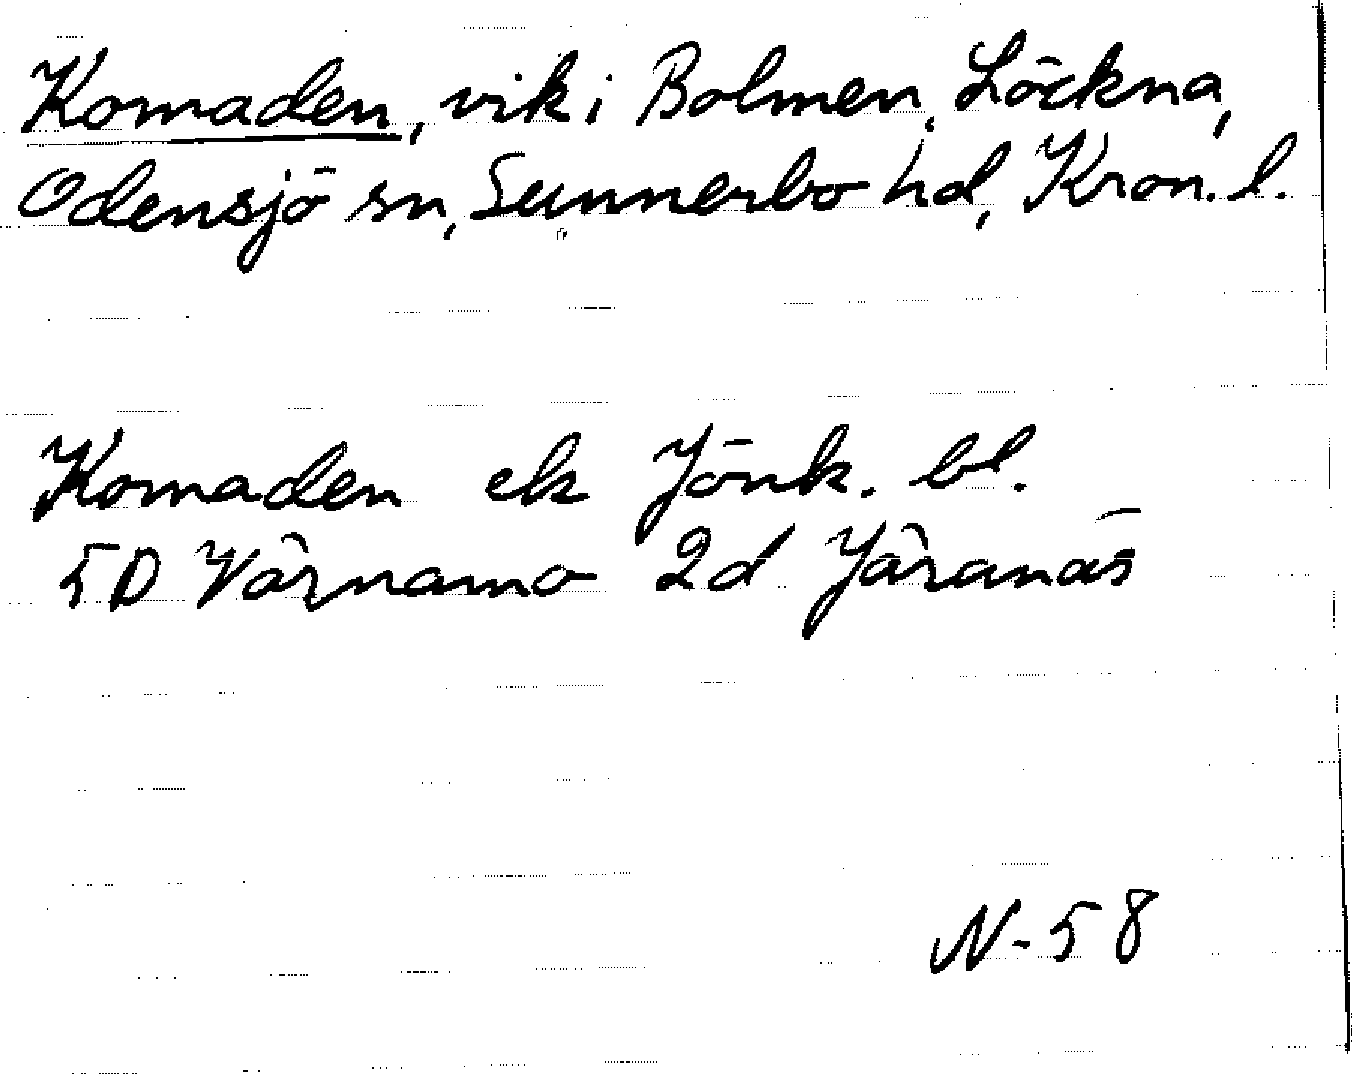 Komaden, vik i Bolmen, Löckna,
Odensjö sn, Sunnerbo hd, Kron. l.
Komaden ek Jönk. bl.
5D Värnamo 2d Järanäs
N-58